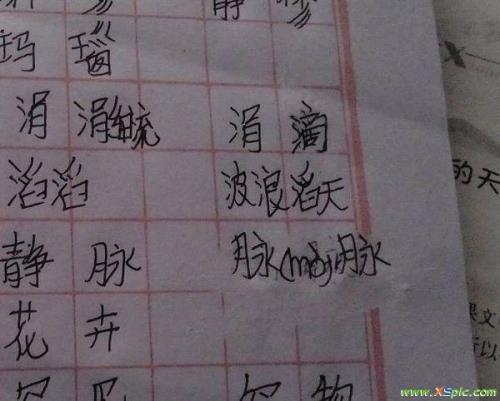 玛 瑙
涓 涓细流 涓 滴
滔滔 波浪滔天
静 脉 脉(mò)脉
花 卉
的天
www.XSpic.com